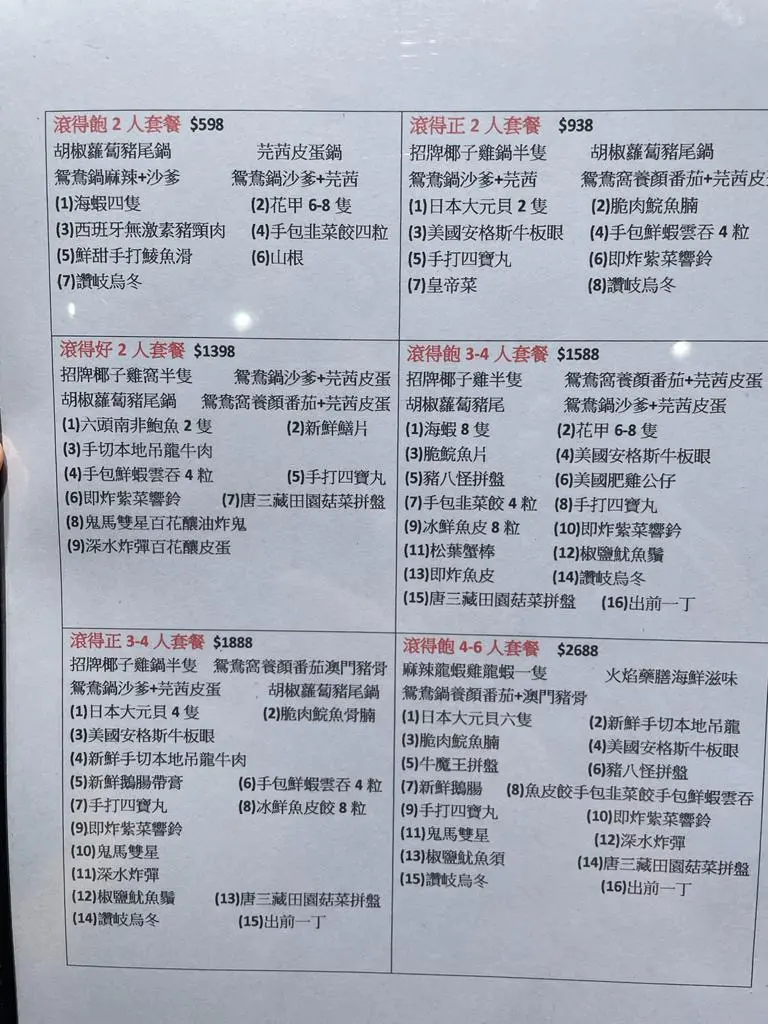 滾得飽 2 人套餐 $598
胡椒蘿蔔豬尾鍋 芫茜皮蛋鍋
鴛鴦鍋麻辣+沙爹 鴛鴦鍋沙爹+芫茜
(1)海蝦四隻 (2)花甲 6-8 隻
(3)西班牙無激素豬頸肉 (4)手包韭菜餃四粒
(5)鮮甜手打鯪魚滑 (6)山根
(7)讚岐烏冬
滾得正 2 人套餐 $938
招牌椰子雞鍋半隻 胡椒蘿蔔豬尾鍋
鴛鴦鍋沙爹+芫茜 鴛鴦窩養顏番茄+芫茜皮
(1)日本大元貝 2 隻 (2)脆肉鯇魚腩
(3)美國安格斯牛板眼 (4)手包鮮蝦雲吞 4 粒
(5)手打四寶丸 (6)即炸紫菜響鈴
(7)皇帝菜 (8)讚岐烏冬
滾得好 2 人套餐 $1398
招牌椰子雞窩半隻 鴛鴦鍋沙爹+芫茜皮蛋
胡椒蘿蔔豬尾鍋 鴛鴦窩養顏番茄+芫茜皮蛋
(1)六頭南非鮑魚 2 隻 (2)新鮮鱔片
(3)手切本地吊龍牛肉
(4)手包鮮蝦雲吞 4 粒 (5)手打四寶丸
(6)即炸紫菜響鈴 (7)唐三藏田園菇菜拼盤
(8)鬼馬雙星百花釀油炸鬼
(9)深水炸彈百花釀皮蛋
滾得飽 3-4 人套餐 $1588
招牌椰子雞半隻 鴛鴦窩養顏番茄+芫茜皮蛋
胡椒蘿蔔豬尾 鴛鴦鍋沙爹+芫茜皮蛋
(1)海蝦 8 隻 (2)花甲 6-8 隻
(3)脆鯇魚片 (4)美國安格斯牛板眼
(5)豬八怪拼盤 (6)美國肥雞公仔
(7)手包韭菜餃 4 粒 (8)手打四寶丸
(9)冰鮮魚皮 8 粒 (10)即炸紫菜響鈐
(11)松葉蟹棒 (12)椒鹽魷魚鬚
(13)即炸魚皮 (14)讚岐烏冬
(15)唐三藏田園菇菜拼盤 (16)出前一丁
滾得正 3-4 人套餐 $1888
招牌椰子雞鍋半隻 鴛鴦窩養顏番茄澳門豬骨
鴛鴦鍋沙爹+芫茜皮蛋 胡椒蘿蔔豬尾鍋
(1)日本大元貝 4 隻 (2)脆肉鯇魚骨腩
(3)美國安格斯牛板眼
(4)新鮮手切本地吊龍牛肉
(5)新鮮鵝腸帶膏 (6)手包鮮蝦雲吞 4 粒
(7)手打四寶丸 (8)冰鮮魚皮餃 8 粒
(9)即炸紫菜響鈴
(10)鬼馬雙星
(11)深水炸彈
(12)椒鹽魷魚鬚 (13)唐三藏田園菇菜拼盤
(14)讚岐烏冬 (15)出前一丁
滾得飽 4-6 人套餐 $2688
麻辣龍蝦雞龍蝦一隻 火焰藥膳海鮮滋味
鴛鴦鍋養顏番茄+澳門豬骨
(1)日本大元貝六隻 (2)新鮮手切本地吊龍
(3)脆肉鯇魚腩 (4)美國安格斯牛板眼
(5)牛魔王拼盤 (6)豬八怪拼盤
(7)新鮮鵝腸 (8)魚皮餃手包韭菜餃手包鮮蝦雲吞
(9)手打四寶丸 (10)即炸紫菜響鈴
(11)鬼馬雙星 (12)深水炸彈
(13)椒鹽魷魚須 (14)唐三藏田園菇菜拼盤
(15)讚岐烏冬 (16)出前一丁